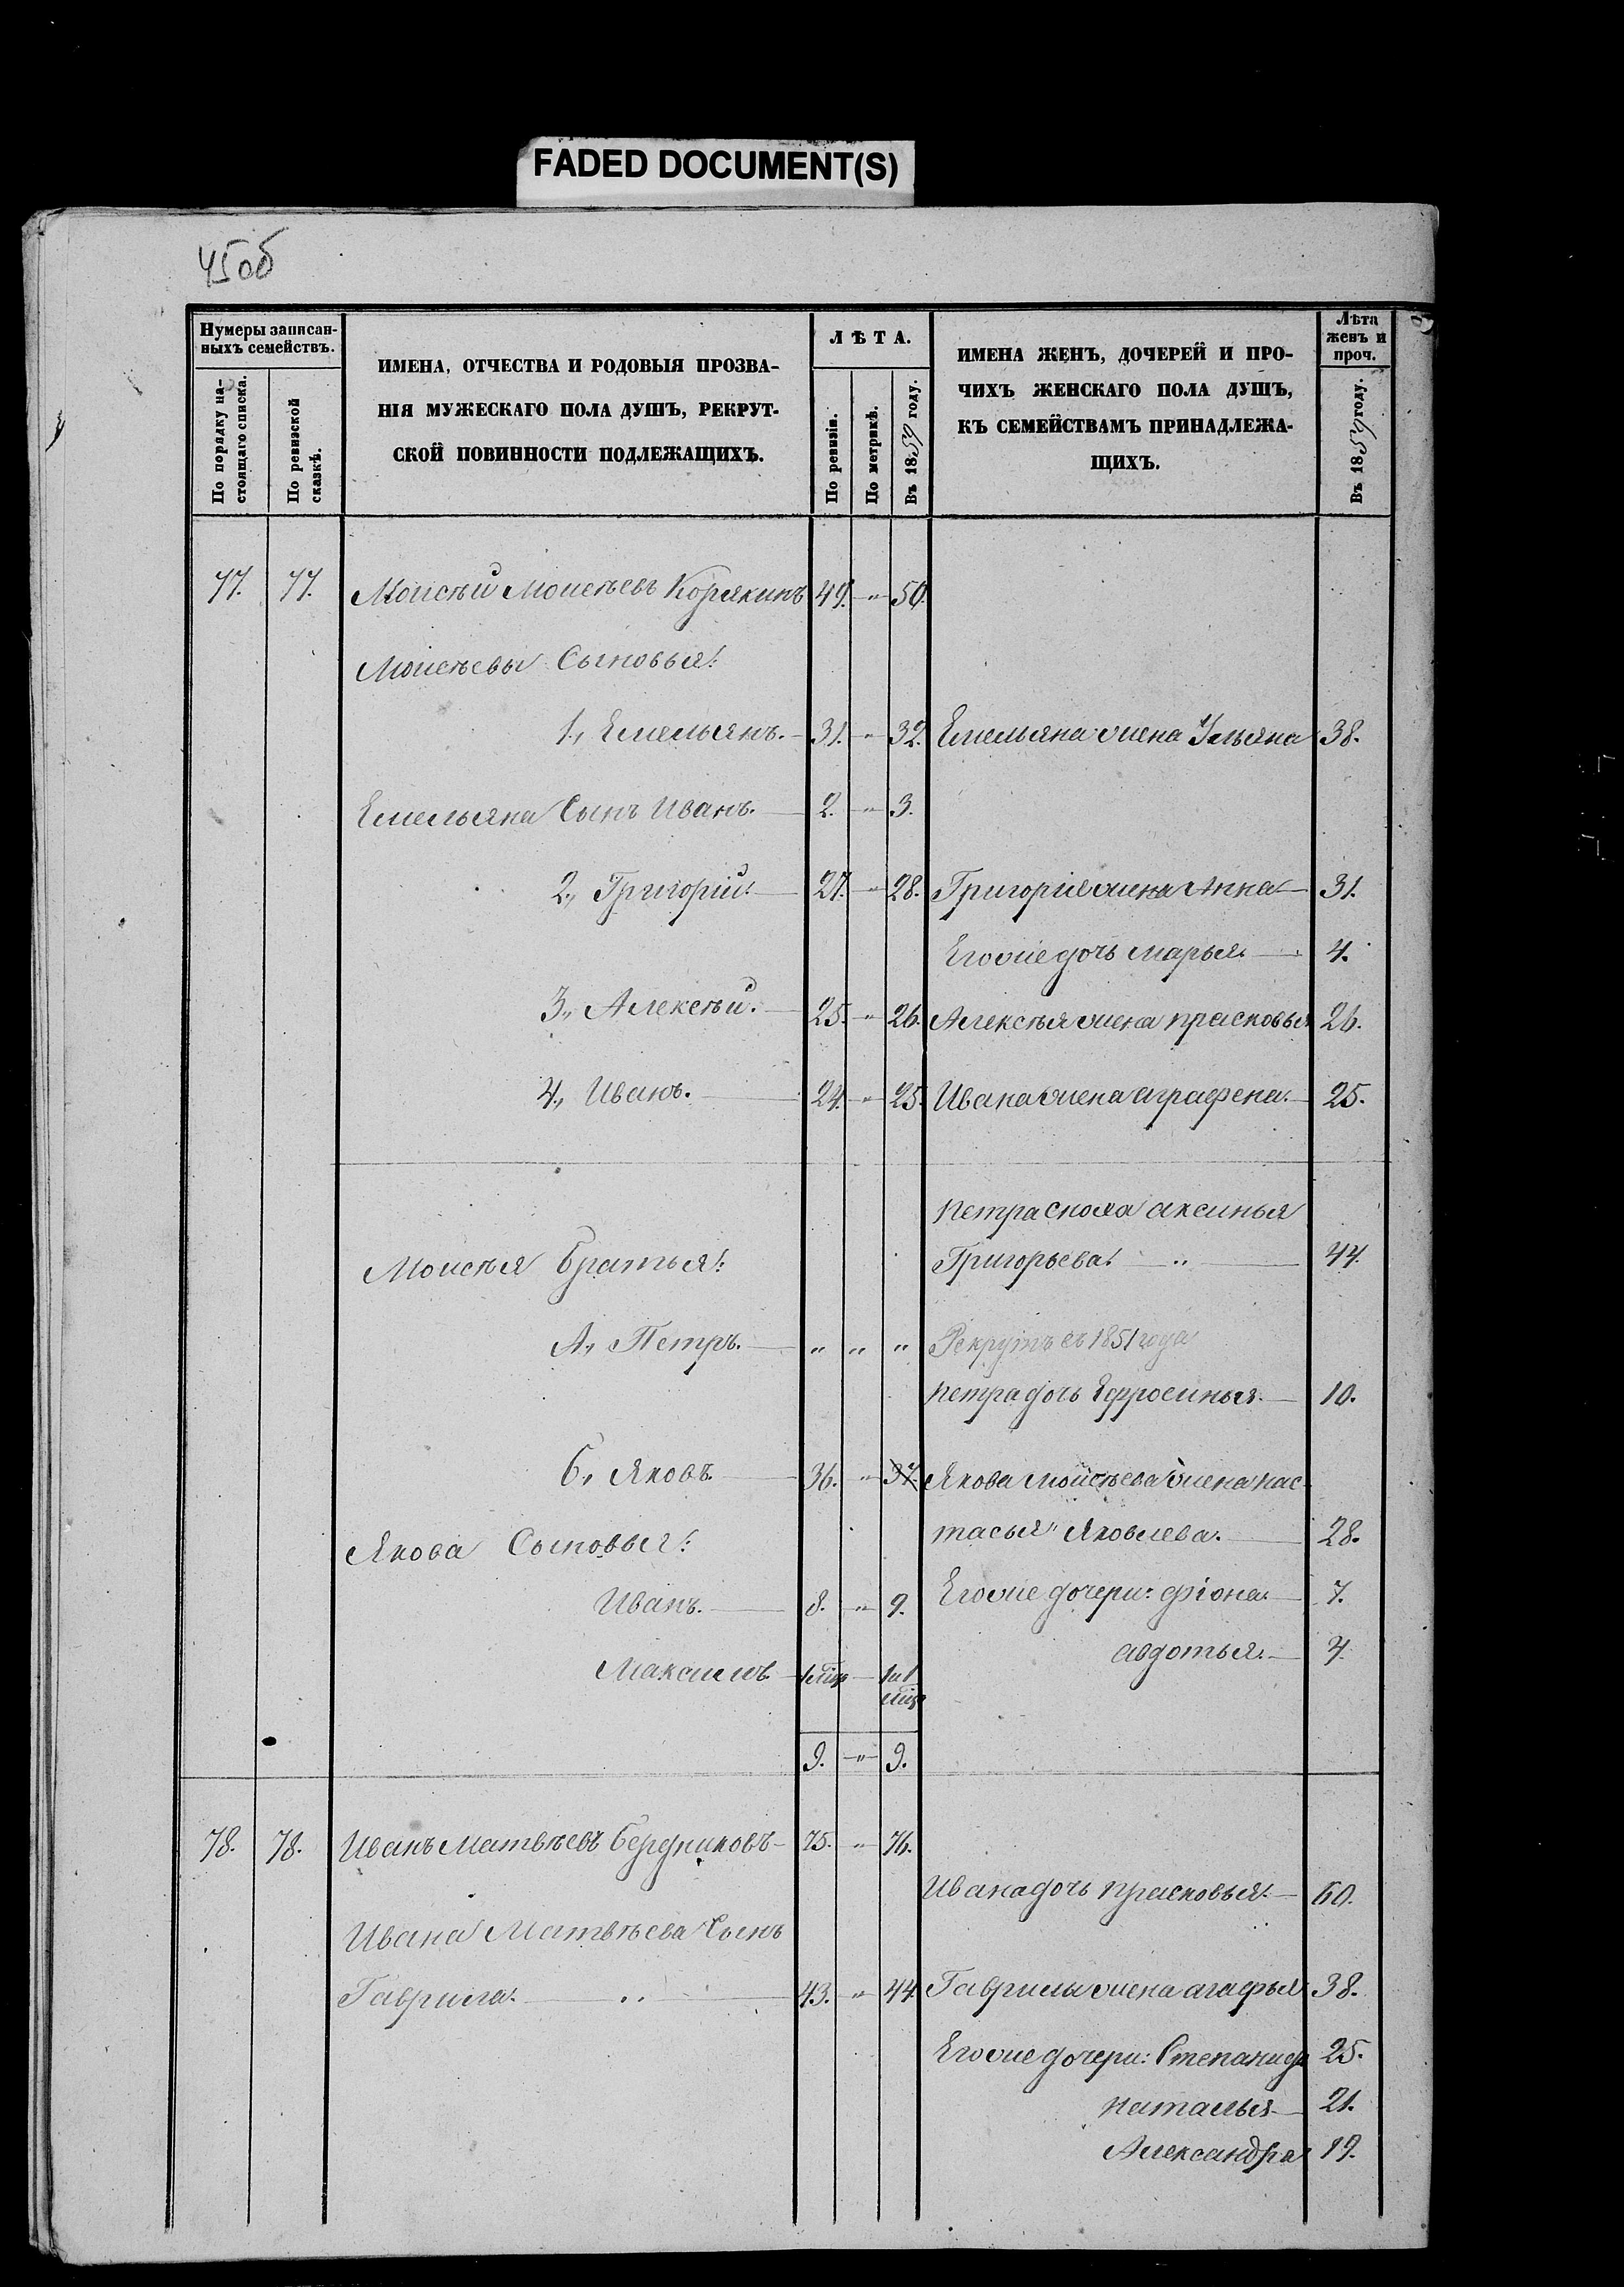 FADED DOCUMENT(S)
45об
Нумеры записан-
ныхъ семействъ.
По порядку на-
стоящаго списка.
По ревизской
сказкѣ.
ИМЕНА, ОТЧЕСТВА И РОДОВЫЯ ПРОЗВА-
НІЯ МУЖЕСКАГО ПОЛА ДУШЪ, РЕКРУТ-
СКОЙ ПОВИННОСТИ ПОДЛЕЖАЩИХЪ.
ЛѢТА.
По ревизіи.
По метрикѣ.
Въ 1859 году.
ИМЕНА ЖЕНЪ, ДОЧЕРЕЙ И ПРО-
ЧИХЪ ЖЕНСКАГО ПОЛА ДУШЪ,
КЪ СЕМЕЙСТВАМЪ ПРИНАДЛЕЖА-
ЩИХЪ.
Лѣта
женъ и
проч.
Въ 1859 году.
77. 77. Моисѣй Моисѣевъ Корякинъ 49. " 50.
Моисѣевы Сыновья:
1., Емельянъ. 31. " 32. Емельяна жена Ульяна 38.
Емельяна Сынъ Иванъ. 2. " 3.
2., Григорій. 27. " 28. Григорія жена Анна 31.
Егоже дочь марья. 4.
3., Алексѣй. 25. " 26. Алексѣя жена прасковья 26.
4., Иванъ. 24. " 25. Ивана жена аграфена. 25.
Петра сноха аксинья
Моисѣя братья: Григорьева. " 44.
А., Петръ. " " " Рекрутъ съ 1851 года
петра дочь Ефросинья. 10.
Б., Яковъ. 36. " 37. Якова Моисѣева жена нас-
тасья Яковлева. 28.
Якова Сыновья:
Иванъ. 8. " 9. Егоже дочери: фіона. 7.
Максимъ авдотья. 4.
9. " 9.
78. 78. Иванъ Матвѣевъ Бердниковъ 75. " 76.
Ивана дочь прасковья. 60.
Ивана Матвѣева Сынъ
Гаврила. 43. " 44. Гаврилы жена агафья 38.
Егоже дочери: Степанида 25.
наталья 21.
Александра 19.